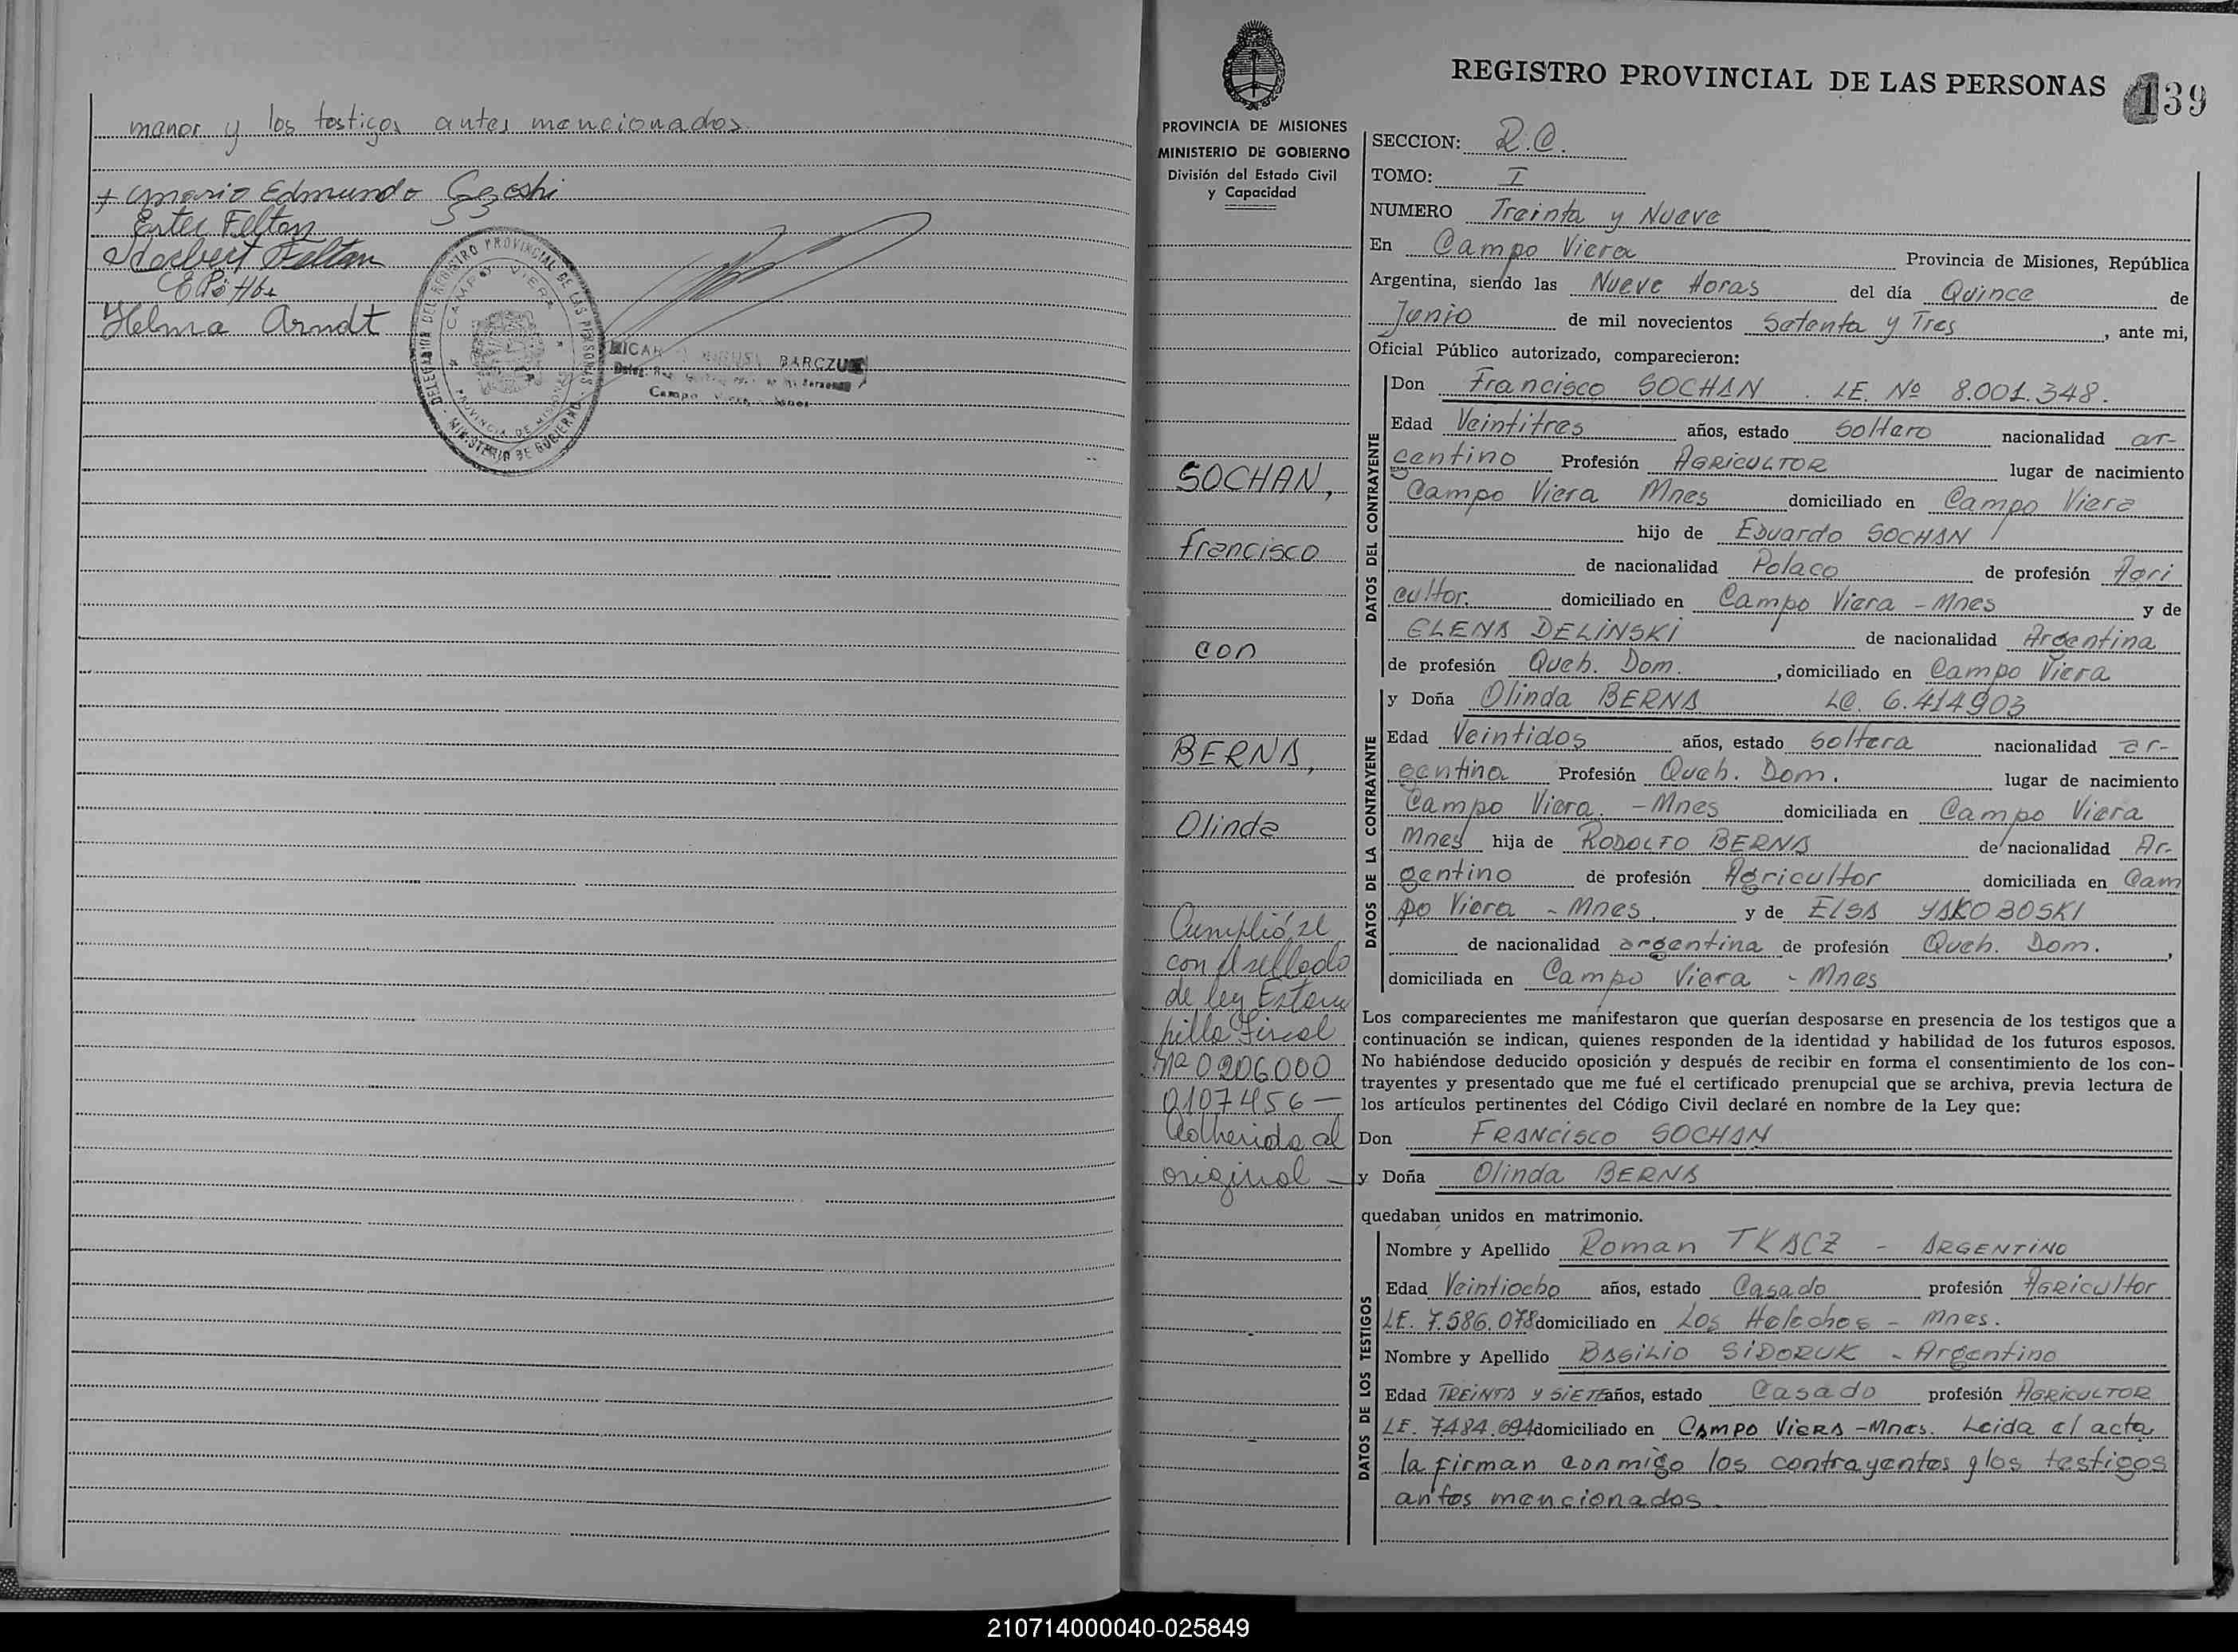 menor y los testigos antes mencionados.
+ Mario Edmundo
Ester Felton
Herbert Felton
Helma Arndt
DELEGACION DEL REGISTRO PROVINCIAL DE LAS PERSONAS
CAMPO VIERA
PROVINCIA DE MISIONES
MINISTERIO DE GOBIERNO
BARCZUK
Campo Viera
PROVINCIA DE MISIONES
MINISTERIO DE GOBIERNO
División del Estado Civil
y Capacidad
SOCHAN,
Francisco
con
BERNA,
Olinda
Cumplió se
con el sellado
de ley Estam
pilla Fiscal
Nº 0206000
0107456 —
Adherida al
original —
REGISTRO PROVINCIAL DE LAS PERSONAS
139
SECCION: R.C.
TOMO: I
NUMERO Treinta y Nueve
En Campo Viera Provincia de Misiones, República
Argentina, siendo las Nueve Horas del día Quince de
Junio de mil novecientos Setenta y Tres, ante mi,
Oficial Público autorizado, comparecieron:
DATOS DEL CONTRAYENTE
Don Francisco SOCHAN. LE. Nº 8.001.348.
Edad Veintitres años, estado Soltero nacionalidad ar-
gentino Profesión AGRICULTOR lugar de nacimiento
Campo Viera Mnes domiciliado en Campo Viera
hijo de Eduardo SOCHAN
de nacionalidad Polaco de profesión Agri
cultor. domiciliado en Campo Viera - Mnes y de
ELENA DELINSKI de nacionalidad Argentina
de profesión Queh. Dom., domiciliado en Campo Viera
DATOS DE LA CONTRAYENTE
y Doña Olinda BERNA LC. 6.414903
Edad Veintidos años, estado Soltera nacionalidad ar-
gentina Profesión Queh. Dom. lugar de nacimiento
Campo Viera. - Mnes domiciliada en Campo Viera
Mnes hija de RODOLFO BERNA de nacionalidad Ar-
gentino de profesión Agricultor domiciliada en Cam
po Viera - Mnes. y de ELSA YAKOBOSKI
de nacionalidad argentina de profesión Queh. Dom.,
domiciliada en Campo Viera - Mnes
Los comparecientes me manifestaron que querían desposarse en presencia de los testigos que a
continuación se indican, quienes responden de la identidad y habilidad de los futuros esposos.
No habiéndose deducido oposición y después de recibir en forma el consentimiento de los con-
trayentes y presentado que me fué el certificado prenupcial que se archiva, previa lectura de
los artículos pertinentes del Código Civil declaré en nombre de la Ley que:
Don FRANCISCO SOCHAN
y Doña Olinda BERNA
quedaban unidos en matrimonio.
DATOS DE LOS TESTIGOS
Nombre y Apellido Roman TKACZ - ARGENTINO
Edad Veintiocho años, estado Casado profesión AGRICUltor
LE. 7.586.078 domiciliado en Los Helechos - Mnes.
Nombre y Apellido BASILIO SIDORUK - Argentino
Edad TREINTA Y SIETE años, estado Casado profesión AGRICULTOR
LE. 7484.694 domiciliado en CAMPO VIERA - Mnes. Leida el acta
la firman conmigo los contrayentes y los testigos
antes mencionados.
210714000040-025849